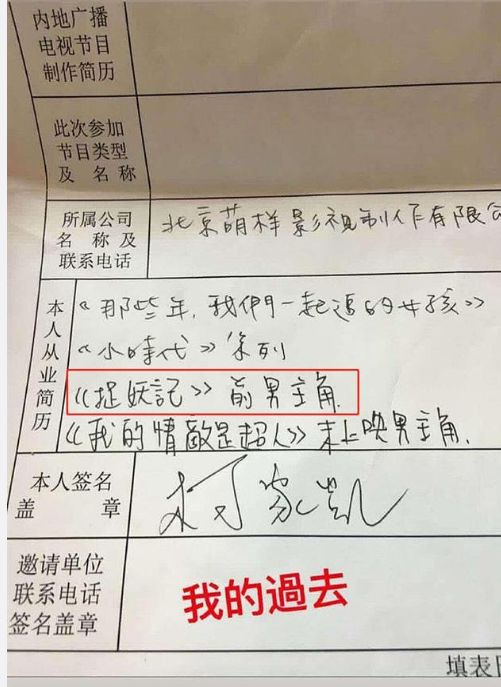 内地广播
电视节目
制作简历
此次参加
节目类型
及 名 称
所属公司
名 称 及
联系电话
北京萌样影视制作有限公
本人从业简历
《那些年,我們一起追的女孩》
《小時代》系列
《捉妖記》前男主角.
《我的情敵是超人》未上映男主角.
本人签名
盖 章
柯家凱
邀请单位
联系电话
签名盖章
我的過去
填表日